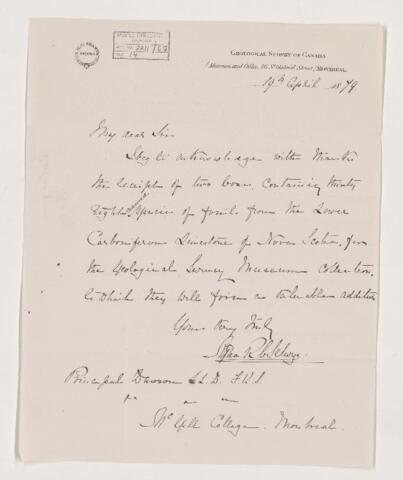 GEOLOGICAL SURVEY OF CANADA
Museum and Office, 76, St Gabriel Street, MONTREAL
19th April 1879
My dear Sir
I beg to acknowledge with thanks
the receipt of two boxes, containing thirty
eight Species of fossils from the Lower
Carboniferous Limestone of Nova Scotia, for
the Geological Survey Museum collection,
to which they will form a valuable addition
Yours Very Truly
Principal Dawson LL.D. F.R.S.
McGill College. Montreal.